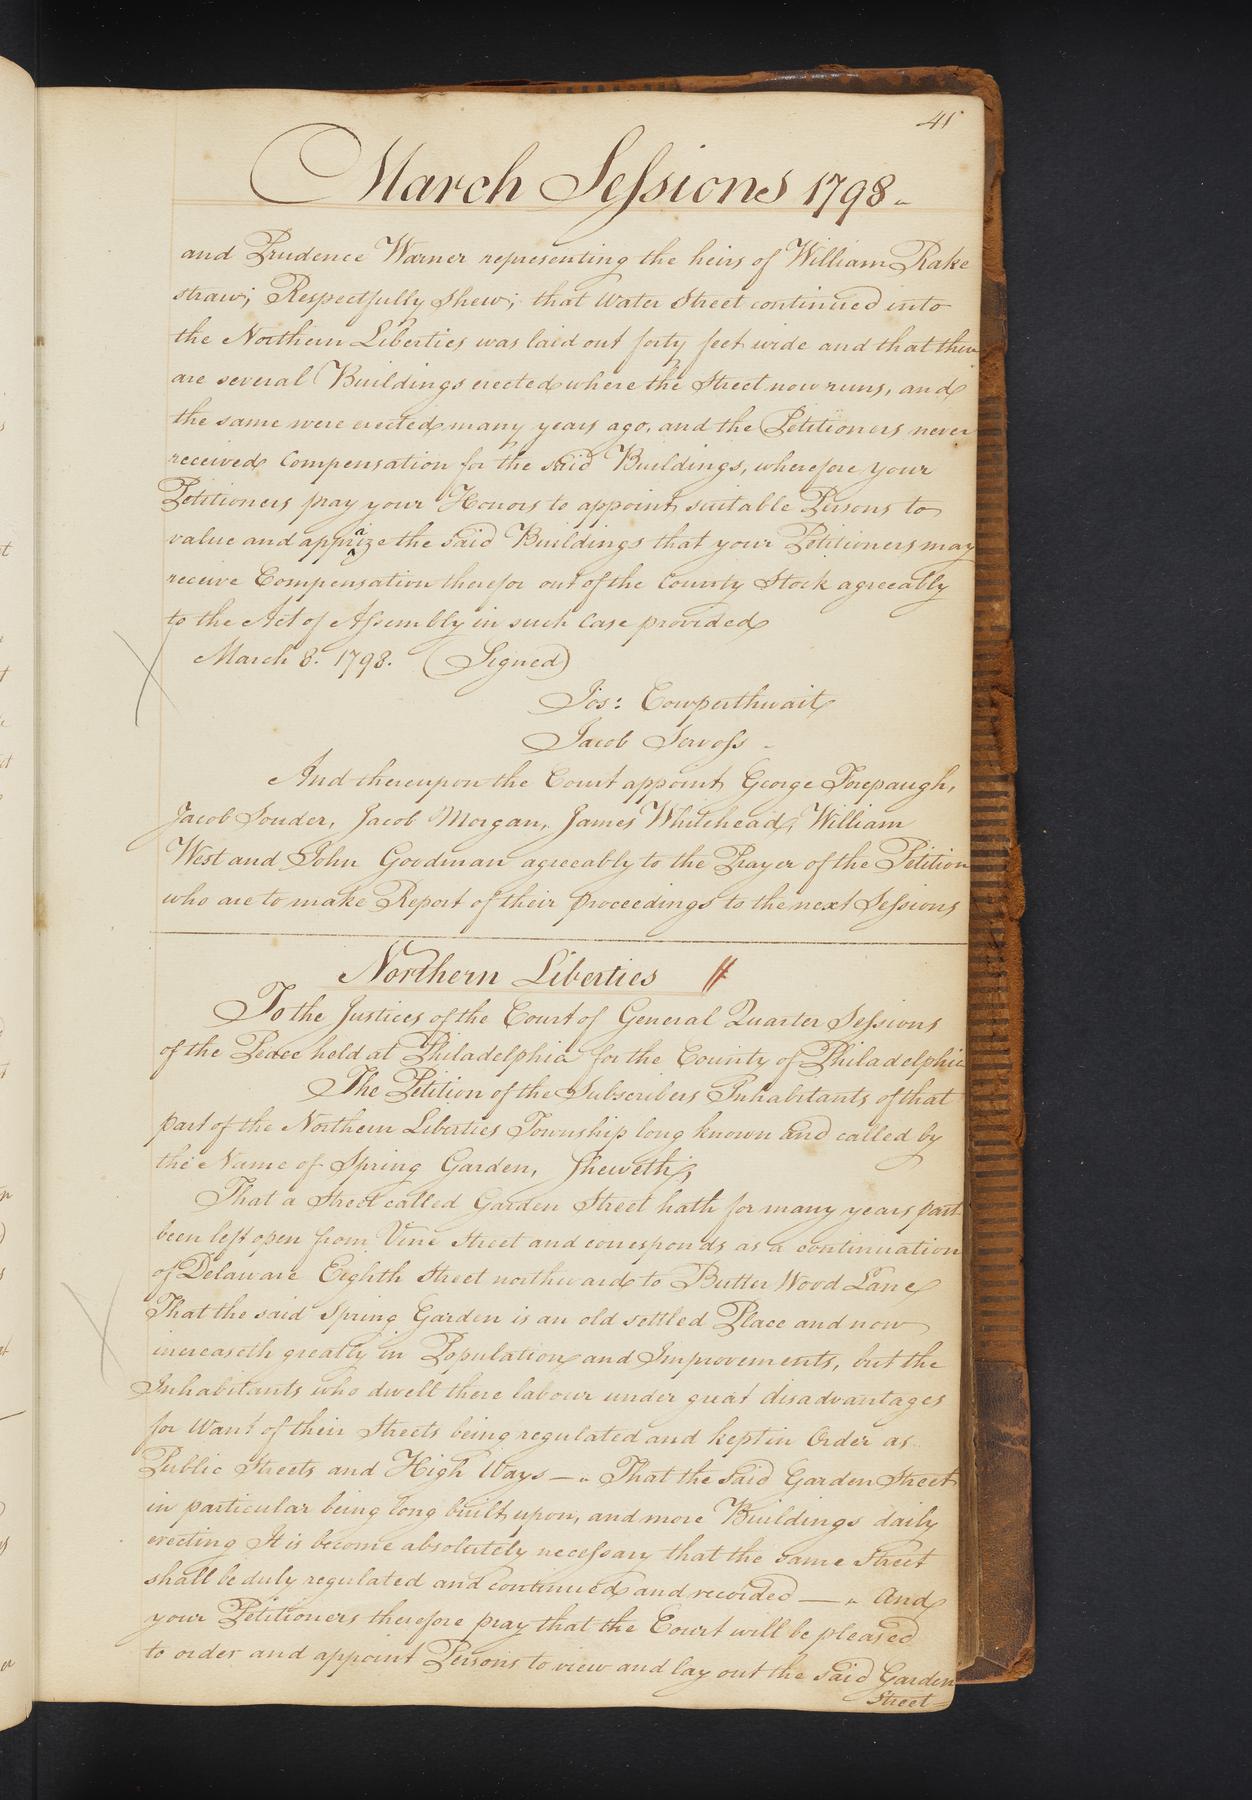 41
March Sessions 1798
and Prudence Warner representing the heirs of William Rake
straw; Respectfully Shew; that Water Street continued into
the Northern Liberties was laid out forty feet wide and that there
are several Buildings erected where the Street now runs, and
the same were erected many years ago, and the Petitioners never
received Compensation for the said Buildings, wherefore your
Petitioners pray your Honors to appoint suitable Persons to
value and appraize the said Buildings that your Petitioners may
receive Compensation therefor out of the County Stock agreeably
to the Act of Assembly in such Case provided
March 8. 1798. (Signed)
Jos: Cowperthwait
Jacob Servoss
And thereupon the Court appoint George Forepaugh,
Jacob Souder, Jacob Morgan, James Whitehead, William
West and John Goodman agreeably to the Prayer of the Petition
who are to make Report of their Proceedings to the next Sessions
Northern Liberties
To the Justices of the Court of General Quarter Sessions
of the Peace held at Philadelphia for the County of Philadelphia
The Petition of the Subscribers Inhabitants of that
part of the Northern Liberties Township long known and called by
the Name of Spring Garden, Sheweth;
That a Street called Garden Street hath for many years past
been left open from Vine Street and corresponds as a continuation
of Delaware Eighth Street northward to Butter Wood Lane
That the said Spring Garden is an old settled Place and now
increaseth greatly in Population and Improvements, but the
Inhabitants who dwell there labour under great disadvantages
for Want of their Streets being regulated and kept in Order as
Public Streets and High Ways — That the said Garden Street
in particular being long built upon, and more Buildings daily
erecting It is become absolutely necessary that the same Street
shall be duly regulated and continued and recorded — And
your Petitioners therefore pray that the Court will be pleased
to order and appoint Persons to view and lay out the said Garden
Street